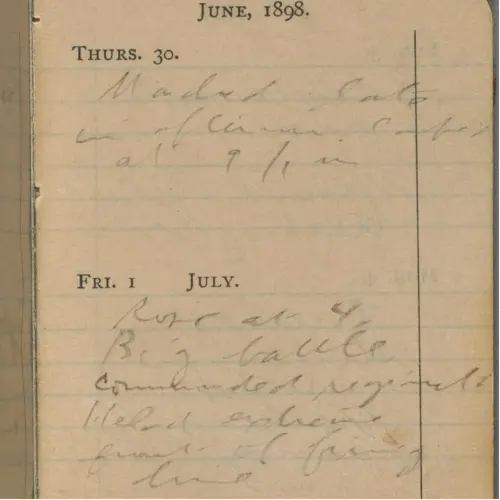 JUNE, 1898.
THURS. 30.
Marched late
in afternoon Camped
at 9 P.m
FRI. 1 JULY.
Rose at 4.
Big battle
commanded regiment
Held extreme
front of firing
line